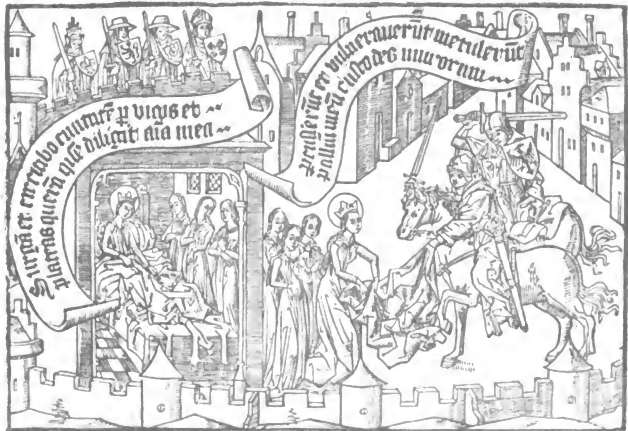 Surgā et circuibo civitatē p vicos et
plateas querā quē diligit aīa mea
et vulneraverūt me tulerūt
palliū meū custodes muroru